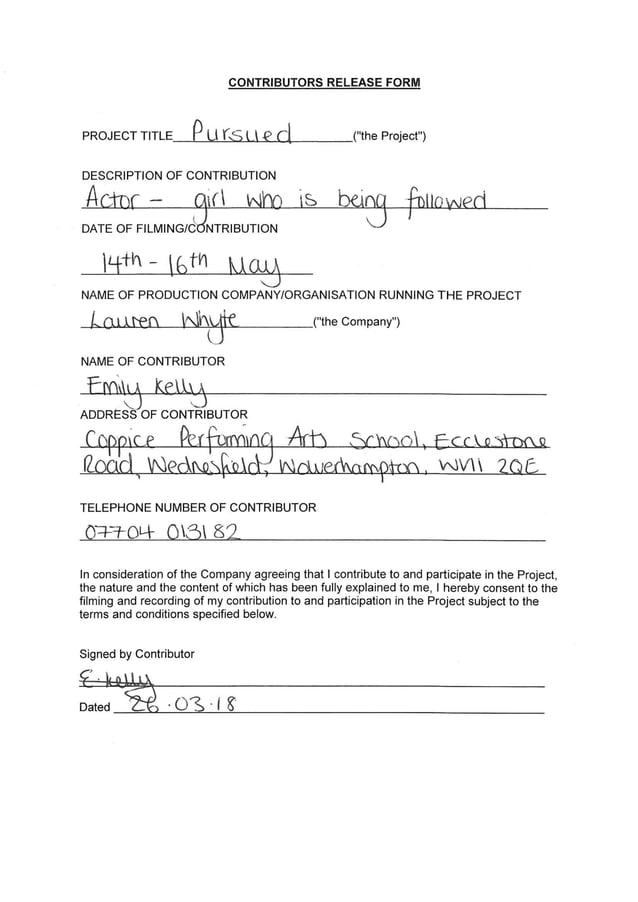 CONTRIBUTORS RELEASE FORM
PROJECT TITLE Pursued ("the Project")
DESCRIPTION OF CONTRIBUTION
Actor - girl who is being followed
DATE OF FILMING/CONTRIBUTION
14th - 16th May
NAME OF PRODUCTION COMPANY/ORGANISATION RUNNING THE PROJECT
Lauren Whyte ("the Company")
NAME OF CONTRIBUTOR
Emily Kelly
ADDRESS OF CONTRIBUTOR
Coppice Performing Arts School, Ecclestone
Road, Wednesfield, Wolverhampton, WV11 2QE
TELEPHONE NUMBER OF CONTRIBUTOR
07704 013182
In consideration of the Company agreeing that I contribute to and participate in the Project,
the nature and the content of which has been fully explained to me, I hereby consent to the
filming and recording of my contribution to and participation in the Project subject to the
terms and conditions specified below.
Signed by Contributor
E. Kelly
Dated 26.03.18